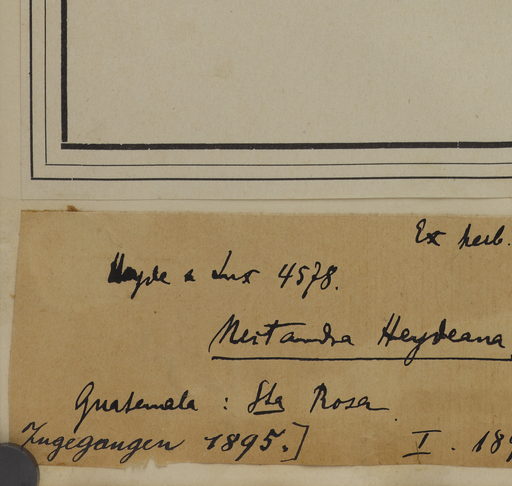 Ex herb.
Heyde & Lux 4578.
Nectandra Heydeana
Guatemala : Sta Rosa
Zugegangen 1895.] I. 189